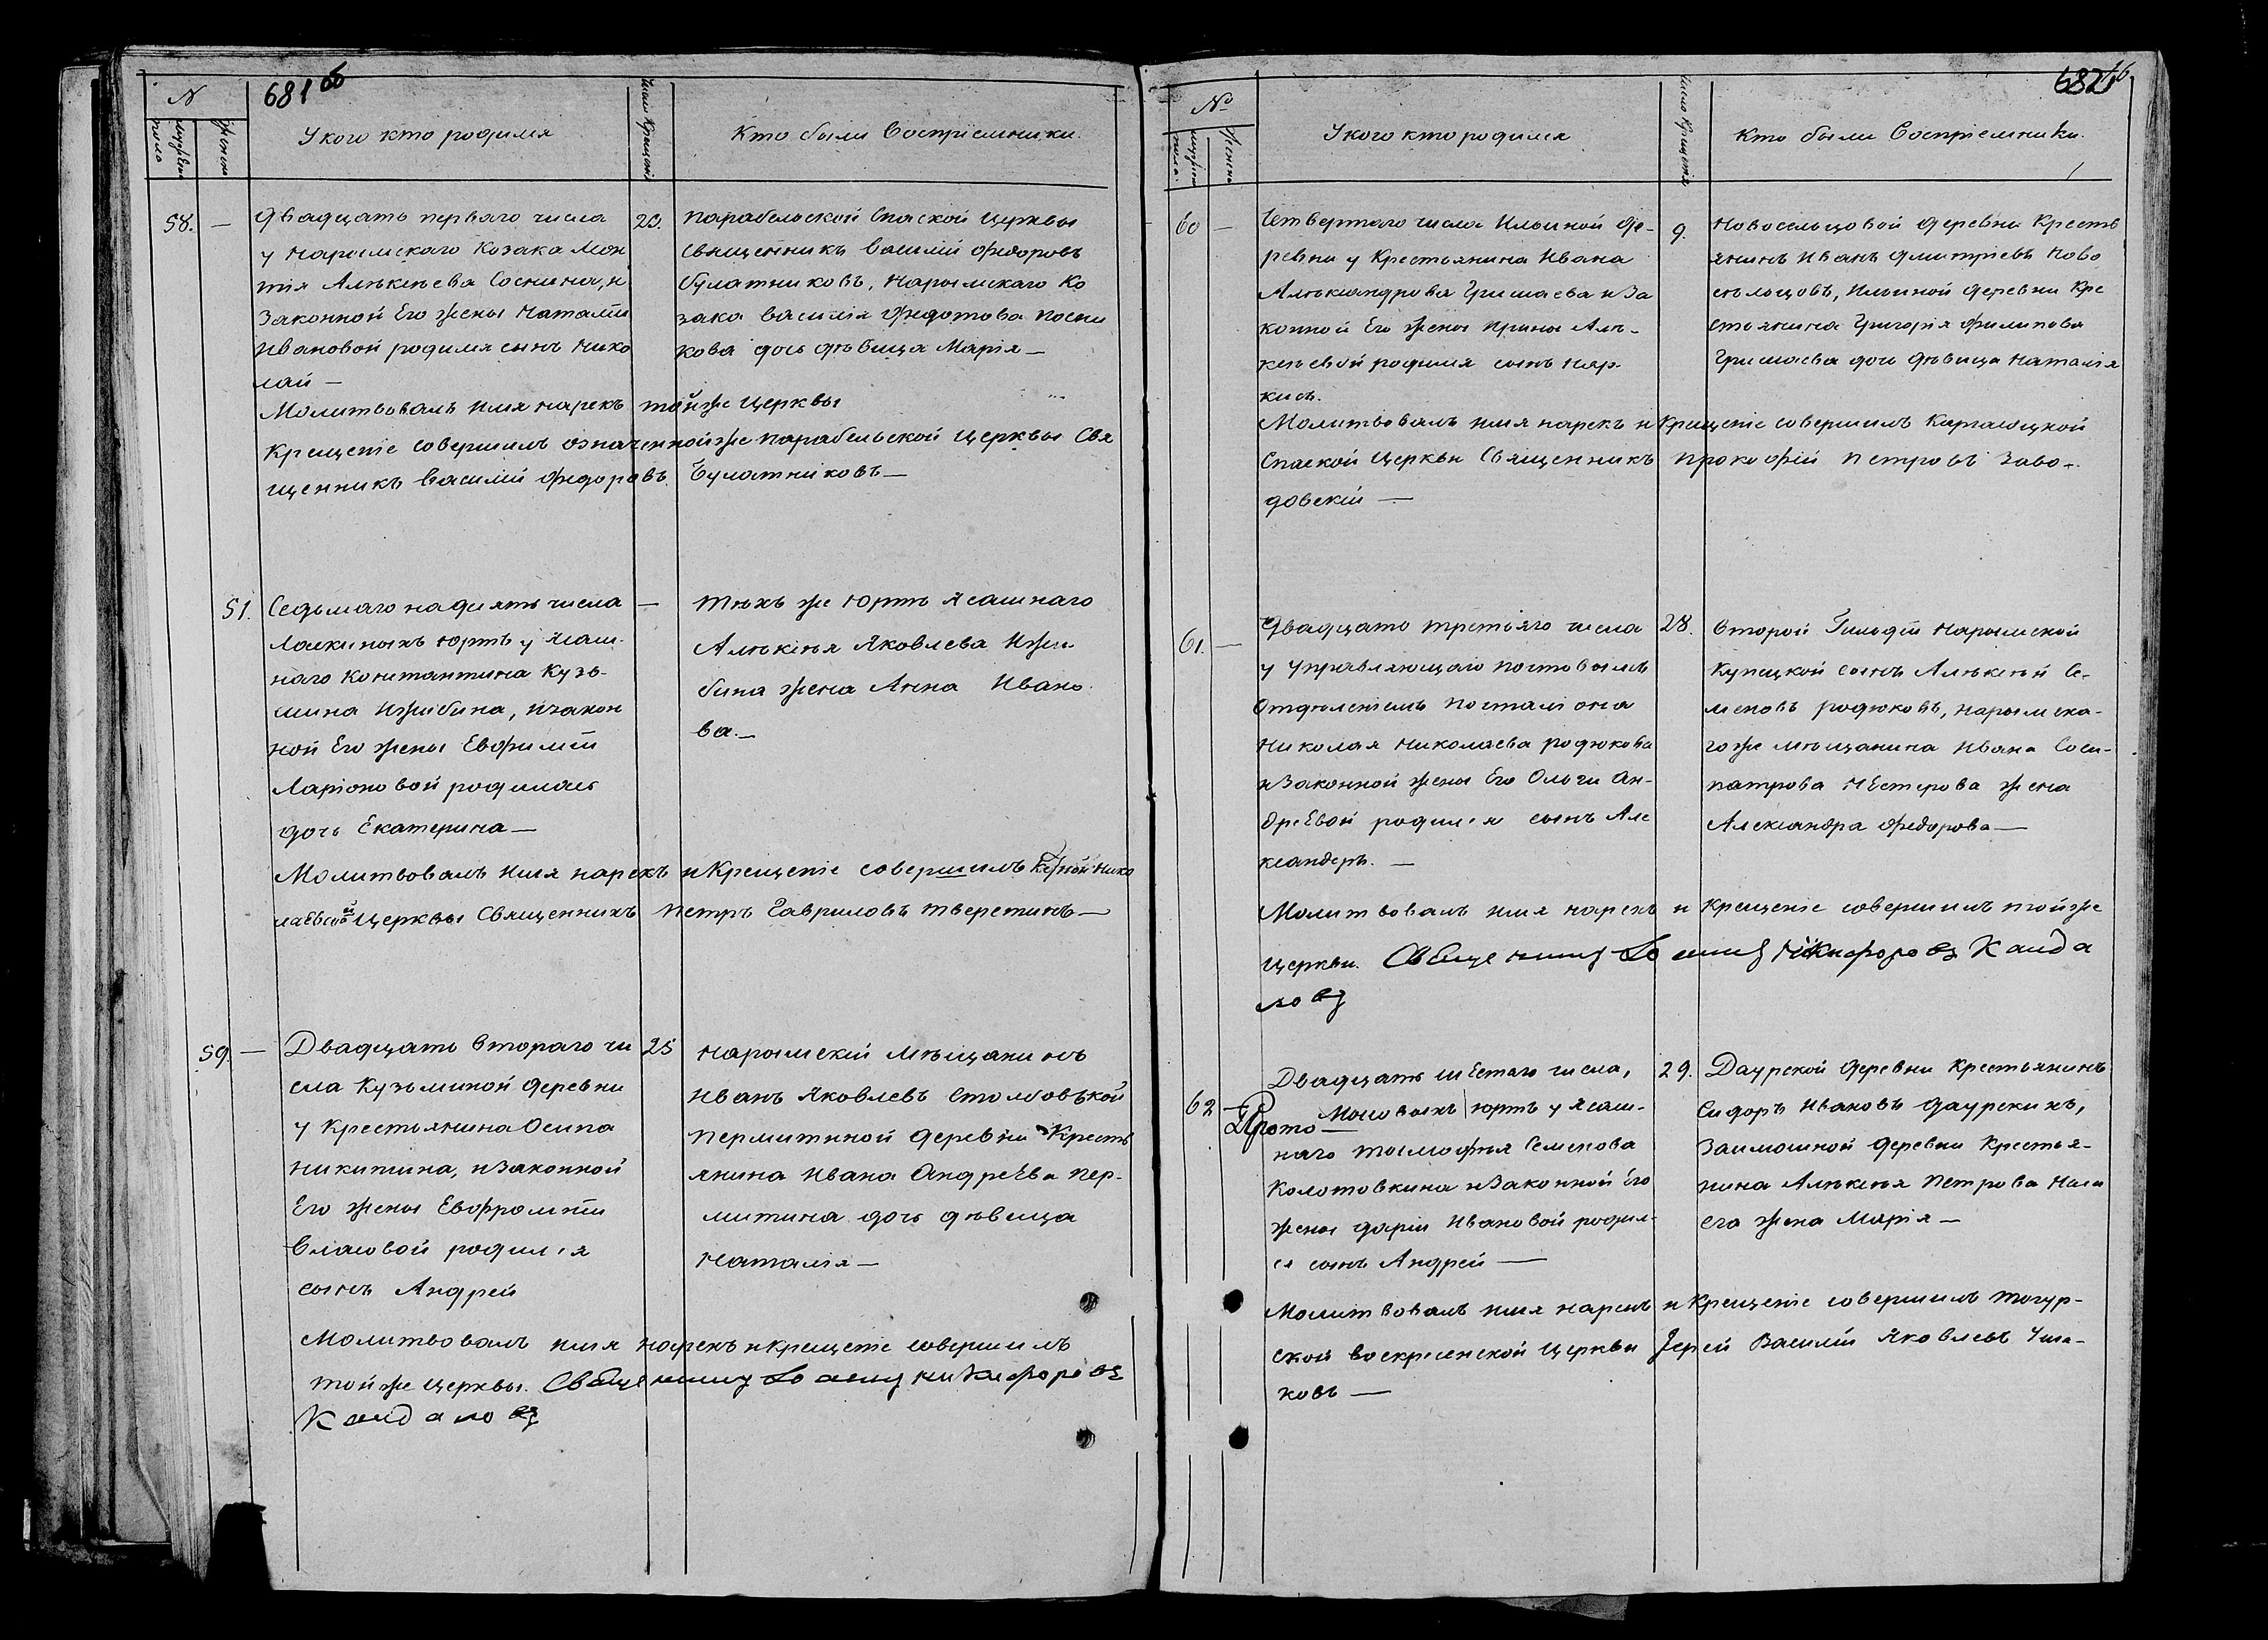 681 об
N
мужеска
пола
женска
У кого кто родился
Число Крещенiя
Кто были Воспрiемники.
58. —
Двадцать перваго числа
у Нарымскаго Козака Леон
тiя Алѣксѣева Соснина, и
Законной Его жены Наталiи
Ивановой родился сынъ Нико
лай —
23.
Парабельской Спаской Церквы
Священникъ Василiй Федоровъ
Булатниковъ, Нарымскаго Ко
зака Василiя Федотова Посни
кова дочь дѣвица Марiя —
Молитвовалъ имя нарекъ той же Церквы
Крещенiе совершилъ означенной же Парабельской Церквы Свя
щенникъ Василiй Федоровъ Булатниковъ —
51.
Седьмаго надцять числа
Ласкиныхъ Юртъ у Ясаш-
наго Константина Кузь-
мина Ижибина, и закон
ной Его жены Евфимiи
Ларiоновой родилась
дочь Екатерина —
—
Тѣхъ же Юртъ Ясашнаго
Алѣксѣя Яковлева Ижи-
бина жена Анна Ивано-
ва. —
Молитвовалъ Имя нарекъ и Крещенiе совершилъ Нико
лаевской Церквы Священникъ Петръ Гавриловъ Тверетинъ —
59. —
Двадцать втораго чи
сла Кузьминой деревни
у Крестьянина Осипа
Никитина, и Законной
Его жены Евфромiи
Власовой родился
сынъ Андрей
25
Нарымскiй Мѣщанинъ
Иванъ Яковлевъ Столбовской
Пермитиной деревни Кресть
янина Ивана Андреева Пер-
митина дочь дѣвица
Наталiя —
Молитвовалъ имя нарекъ и крещенiе совершилъ
той же Церквы. Священникъ Никифоровъ
Кайдаловъ
682
№
мужеска
пола.
женска
У кого кто родился
Число Крещенiя
Кто были Воспрiемники.
60 —
Четвертаго числа Ильиной де-
ревни у Крестьянина Ивана
Алѣксандрова Гришаева и За
конной Его жены Ирины Алѣ-
ксѣевой родился сынъ Нар-
кисъ.
9.
Новосельцовой деревни Кресть
янинъ Иванъ Дмитрiевъ Ново
сѣльцовъ, Ильиной деревни Кре
стьянина Григорiя Филипова
Гришаева дочь дѣвица Наталiя
Молитвовалъ имя нарекъ и Крещенiе совершилъ Каргасоцкой
Спаской Церкви Священникъ Прокофiй Петровъ Заво-
довскiй —
61. —
Двадцать третьяго числа
у Управляющаго Почтовымъ
Отдѣленiемъ Почталiона
Николая Николаева Родюкова
и Законной жены Его Ольги Ан-
дреевой родился сынъ Але
ксандеръ. —
28.
Второй Гильдiи Нарымской
Купецкой сынъ Алѣксѣй Се-
меновъ Родюковъ, Нарымска-
го же мѣщанина Ивана Соси-
патрова Нестерова жена
Александра Федорова —
Молитвовалъ имя нарекъ и Крещенiе совершилъ той же
Церкви. Священникъ Никифоровъ Кайда
ловъ
62 —
Двадцать шестаго числа,
Прото
Мосовыхъ Юртъ у Ясаш-
наго Тимофѣя Семенова
Колотовкина и Законной Его
жены Дарiи Ивановой родил-
ся сынъ Андрей —
29.
Даурской деревни Крестьянинъ
Сидоръ Ивановъ Даурскихъ,
Заимошной деревни Крестья-
нина Алѣксѣя Петрова
жена Марiя —
Молитвовалъ имя нарекъ и Крещенiе совершилъ Тогур-
ской Воскресенской Церкви Iерей Василiй Яковлевъ Уша-
ковъ —